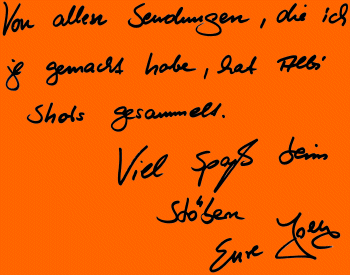 Von allen Sendungen, die ich
je gemacht habe, hat Albi
Shots gesammelt.
Viel Spaß beim
Stöbern
Eure